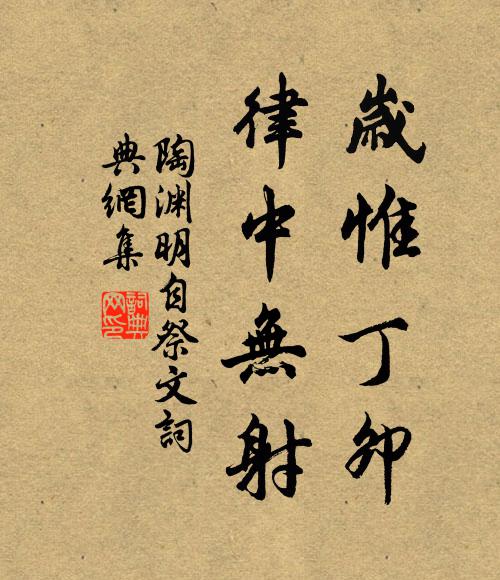 歲惟丁卯
律中無射
陶渊明自祭文詞
典網集
詞典
网印